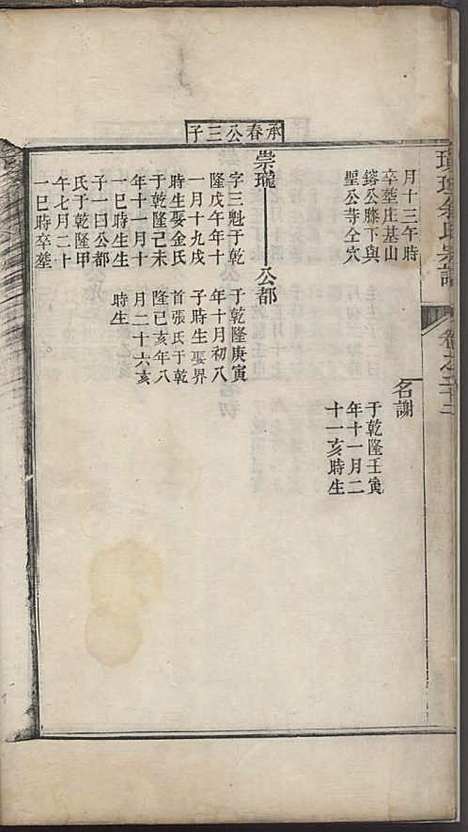 承春公三子
月十三午時
卒塟庄基山
鎔公滕下與
聖公芽仝穴
名謝
于乾隆壬寅
年十一月二
十一亥時生
崇瓏
字三魁于乾
隆戊午年十
一月十九戌
時生娶金氏
于乾隆己未
年十一月十
一巳時生
子一曰公都
氏于乾隆甲
午七月二十
一巳時卒塟
公都
于乾隆庚寅
年十月初八
子時生娶界
首張氏于乾
隆己亥年八
月二十六亥
時生